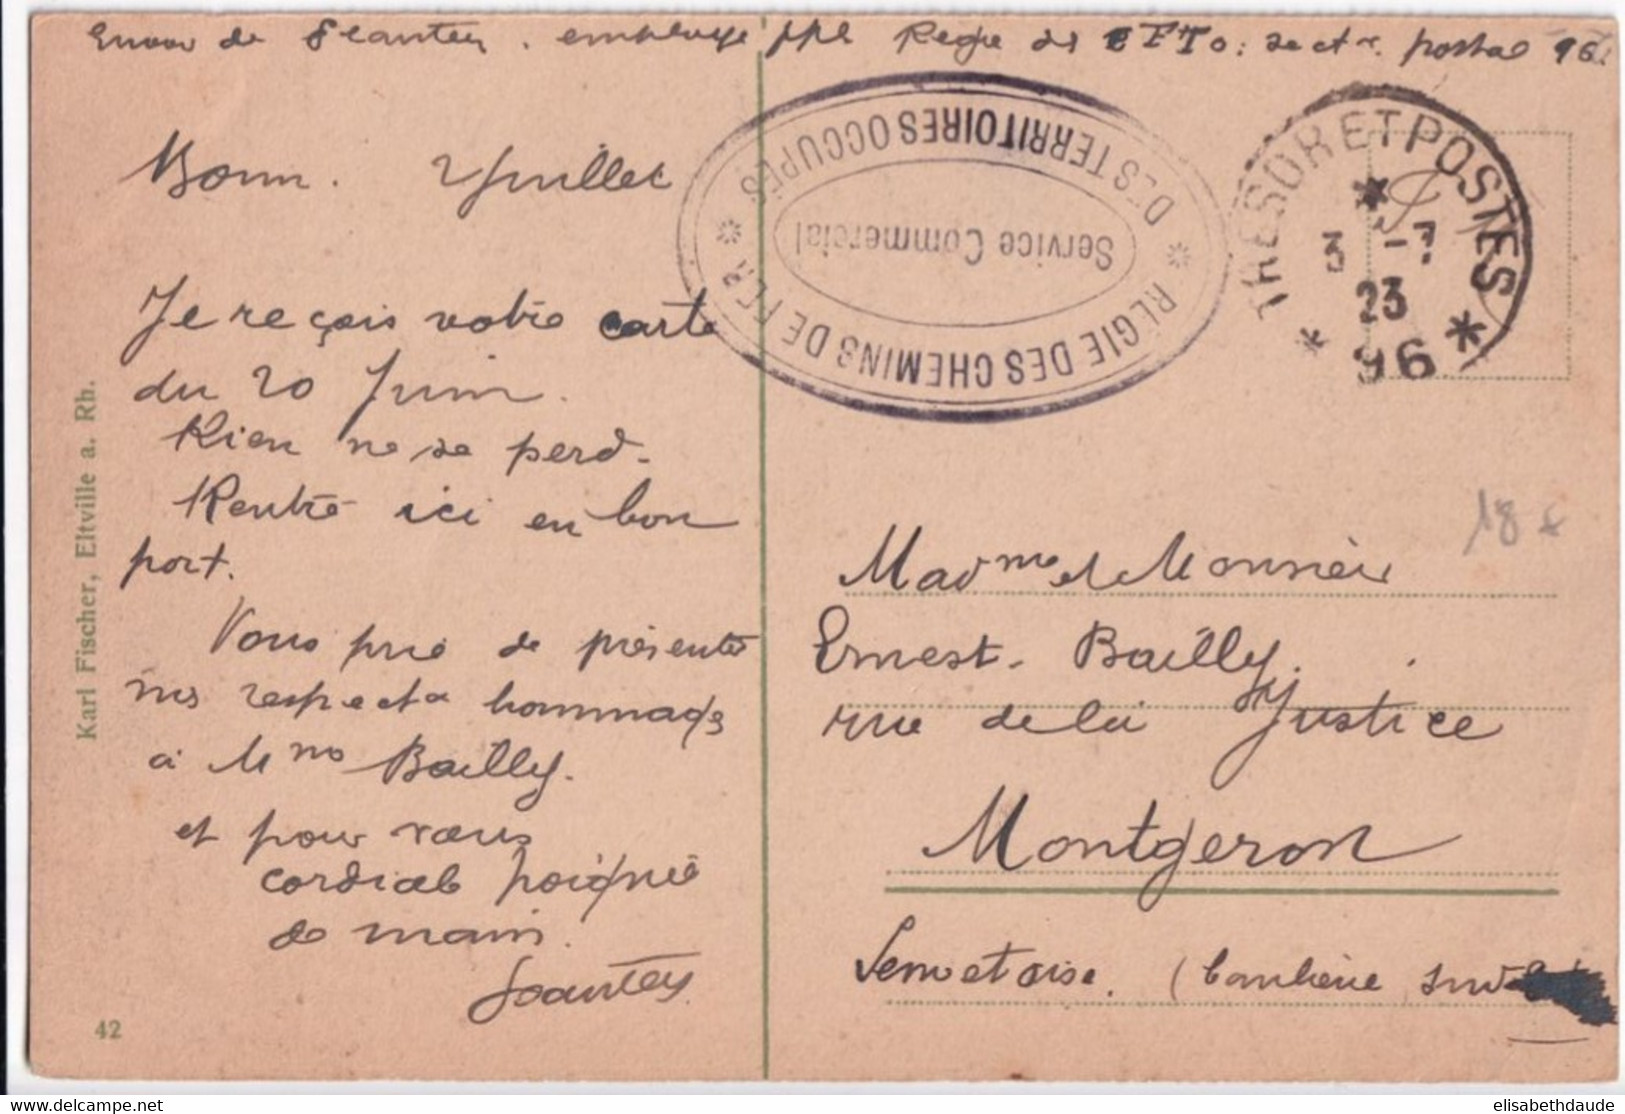 Envoi de employé ppl Régie des C F T O: secteur postal 96
Bonn. 2 Juillet
Je reçois votre carte
du 20 Juin.
Rien ne se perd.
Rentré ici en bon
port.
Vous prie de présenter
mes respects hommages
à Mme Bailly.
et pour vous
cordiale poignée
de main.
REGIE DES CHEMINS DE FER * DES TERRITOIRES OCCUPES *
Service Commercial
TRESOR ET POSTES
3 -7
23
* 96 *
18 €
Madme et Monsieur
Ernest Bailly.
rue de la Justice
Montgeron
Seine et Oise. (banlieue
Karl Fischer, Eltville a. Rh.
42
elisabethdaude